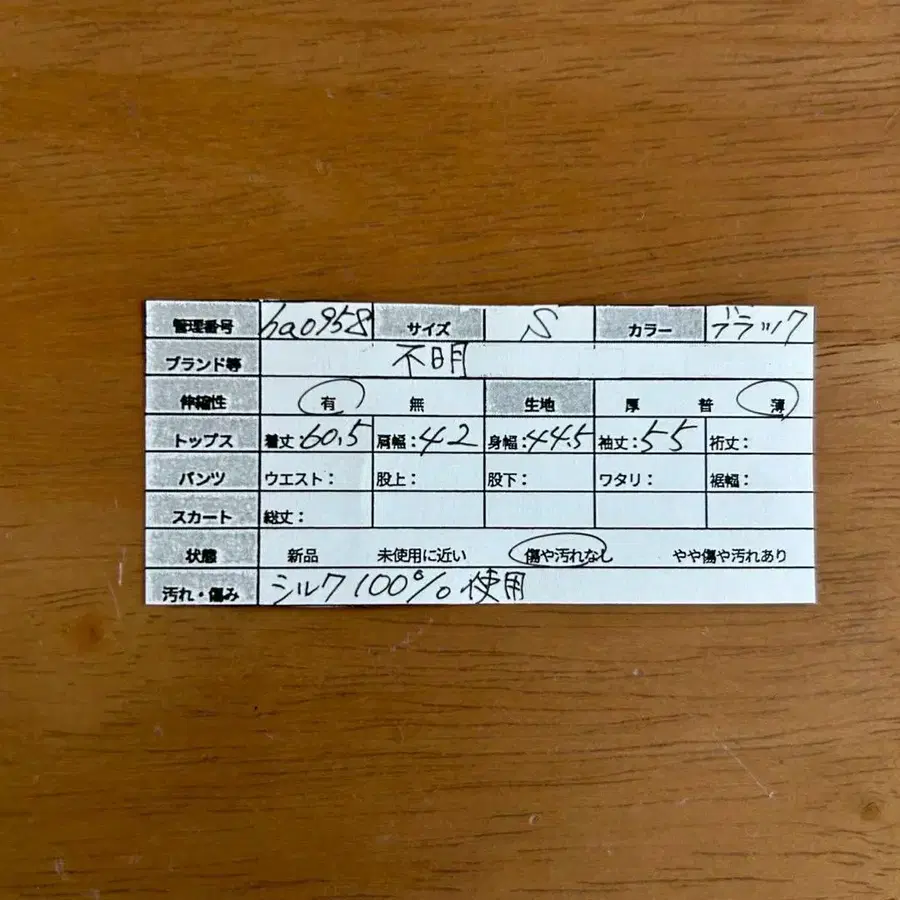 管理番号 ha0958 サイズ S カラー ブラック
ブランド等 不明
伸縮性 有 無 生地 厚 普 薄
トップス 着丈:60.5 肩幅:42 身幅:44.5 袖丈:55 裄丈:
パンツ ウエスト: 股上: 股下: ワタリ: 裾幅:
スカート 総丈:
状態 新品 未使用に近い 傷や汚れなし やや傷や汚れあり
汚れ・傷み シルク100%使用